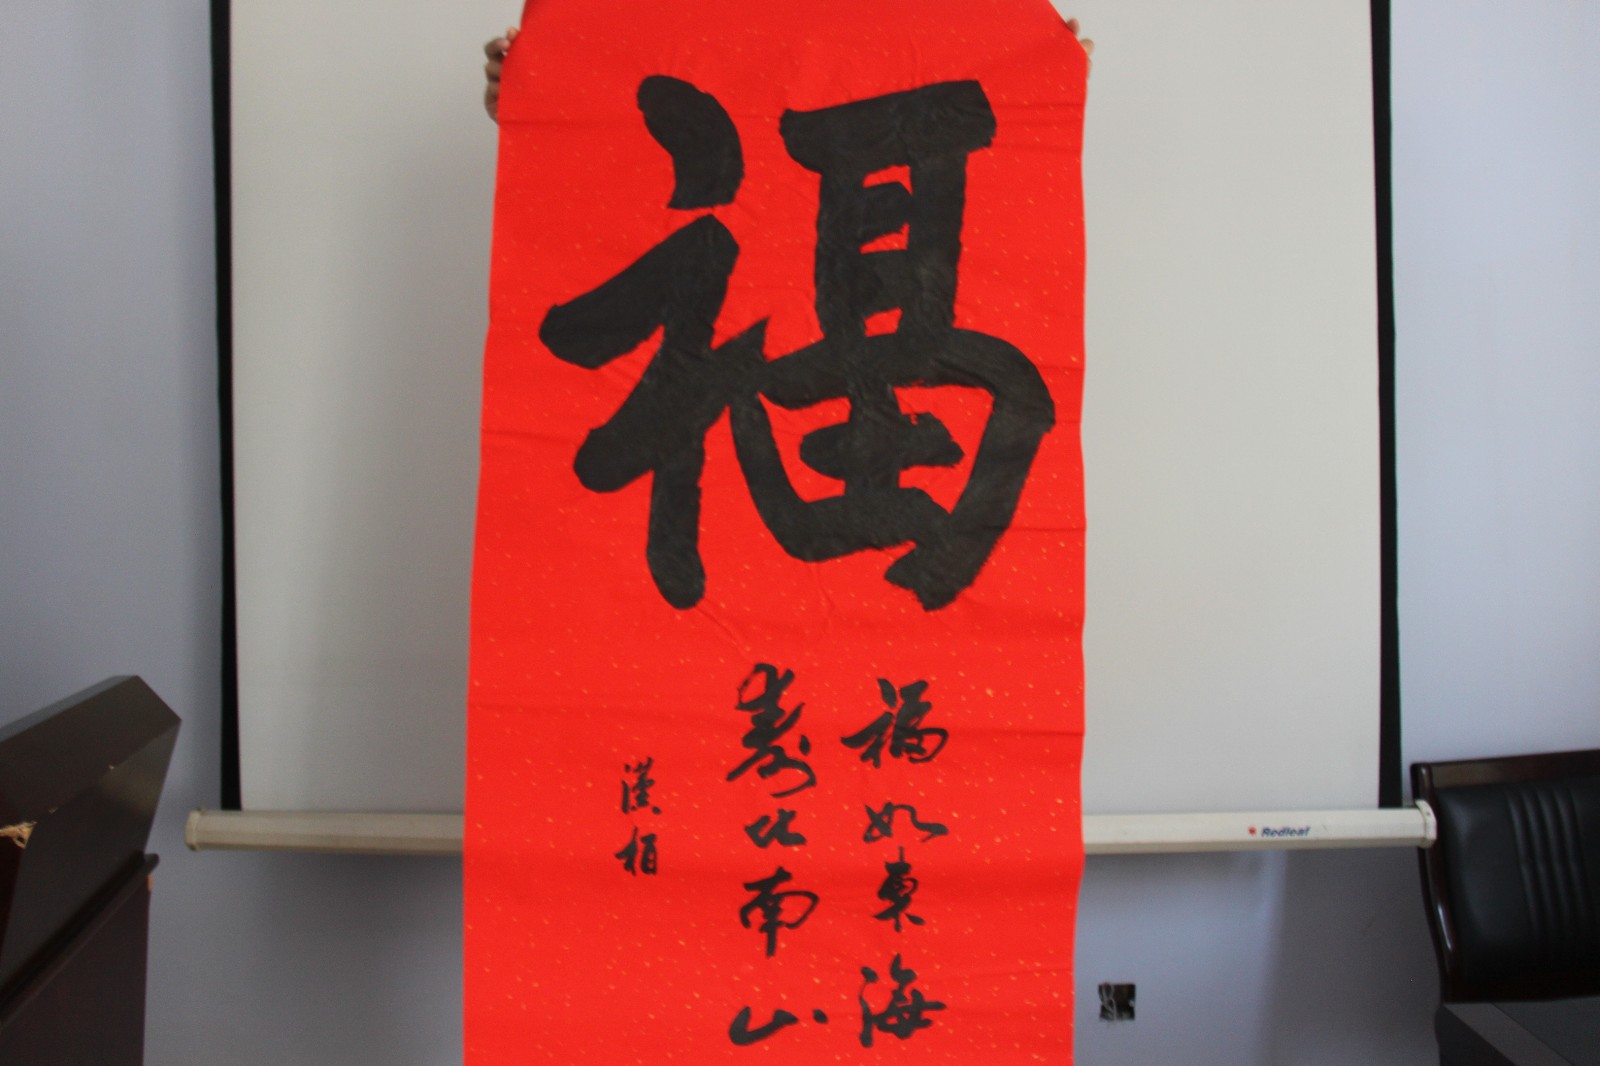 福
福如東海
壽比南山
漢栢
Redleaf